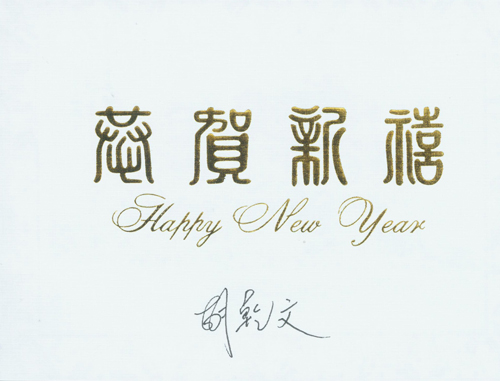 恭賀新禧
Happy New Year
胡乾文